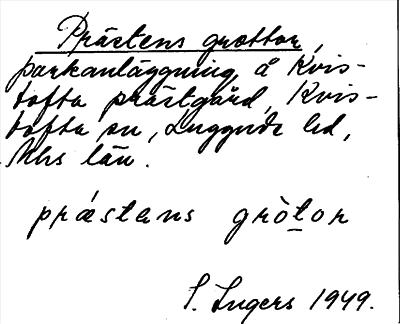 Prästens grottor,
parkanläggning å Kvis-
tofta prästgård, Kvis-
tofta sn, Luggude hd,
Mhs län.
prǽstens grò̱tor
S. Ingers 1949.